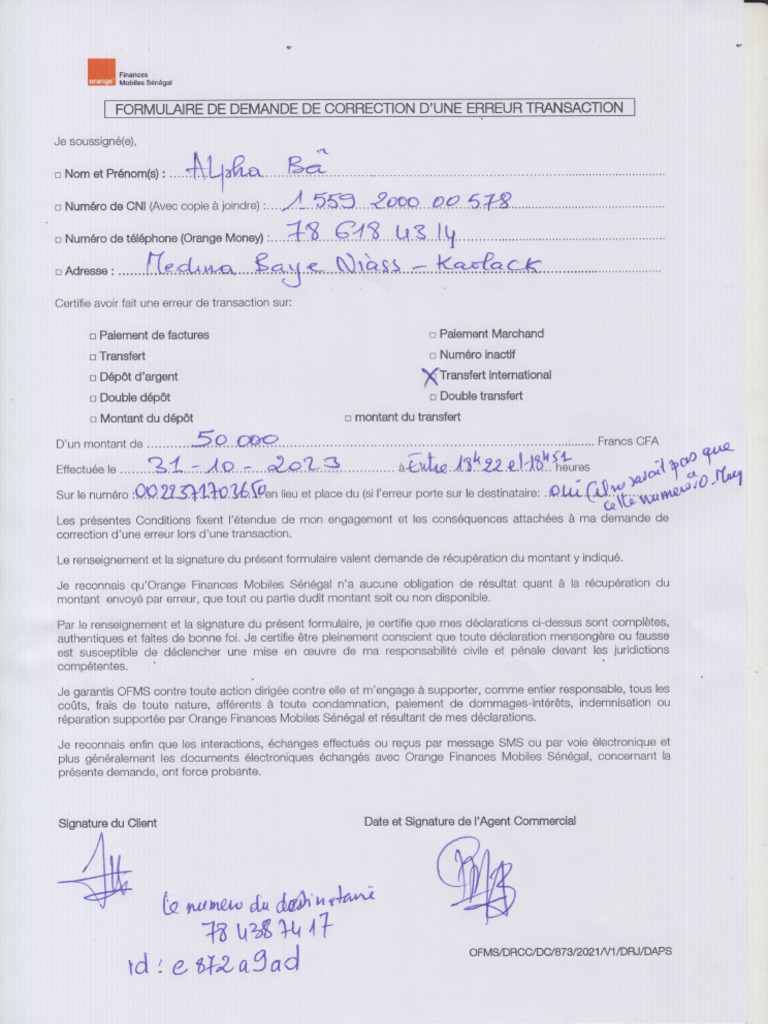 orange
Finances
Mobiles Sénégal
FORMULAIRE DE DEMANDE DE CORRECTION D'UNE ERREUR TRANSACTION
Je soussigné(e),
□ Nom et Prénom(s) : Alpha Bâ
□ Numéro de CNI (Avec copie à joindre) : 1 559 2000 00578
□ Numéro de téléphone (Orange Money) : 78 618 43 14
□ Adresse : Medina Baye Niàss - Kaolack
Certifie avoir fait une erreur de transaction sur:
□ Paiement de factures □ Paiement Marchand
□ Transfert □ Numéro inactif
□ Dépôt d'argent X Transfert international
□ Double dépôt □ Double transfert
□ Montant du dépôt □ montant du transfert
D'un montant de 50 000 Francs CFA
Effectuée le 31-10-2023 à Entre 18h22 et 18h51 heures
Sur le numéro : 0022371703650 en lieu et place du (si l'erreur porte sur le destinataire: oui (il ne savait pas que
cette numero a O. Money
Les présentes Conditions fixent l'étendue de mon engagement et les conséquences attachées à ma demande de
correction d'une erreur lors d'une transaction.
Le renseignement et la signature du présent formulaire valent demande de récupération du montant y indiqué.
Je reconnais qu'Orange Finances Mobiles Sénégal n'a aucune obligation de résultat quant à la récupération du
montant envoyé par erreur, que tout ou partie dudit montant soit ou non disponible.
Par le renseignement et la signature du présent formulaire, je certifie que mes déclarations ci-dessus sont complètes,
authentiques et faites de bonne foi. Je certifie être pleinement conscient que toute déclaration mensongère ou fausse
est susceptible de déclencher une mise en œuvre de ma responsabilité civile et pénale devant les juridictions
compétentes.
Je garantis OFMS contre toute action dirigée contre elle et m'engage à supporter, comme entier responsable, tous les
coûts, frais de toute nature, afférents à toute condamnation, paiement de dommages-intérêts, indemnisation ou
réparation supportée par Orange Finances Mobiles Sénégal et résultant de mes déclarations.
Je reconnais enfin que les interactions, échanges effectués ou reçus par message SMS ou par voie électronique et
plus généralement les documents électroniques échangés avec Orange Finances Mobiles Sénégal, concernant la
présente demande, ont force probante.
Signature du Client Date et Signature de l'Agent Commercial
Le numero du destinataire
78 438 74 17
id : e872a9ad
OFMS/DRCC/DC/873/2021/V1/DRJ/DAPS